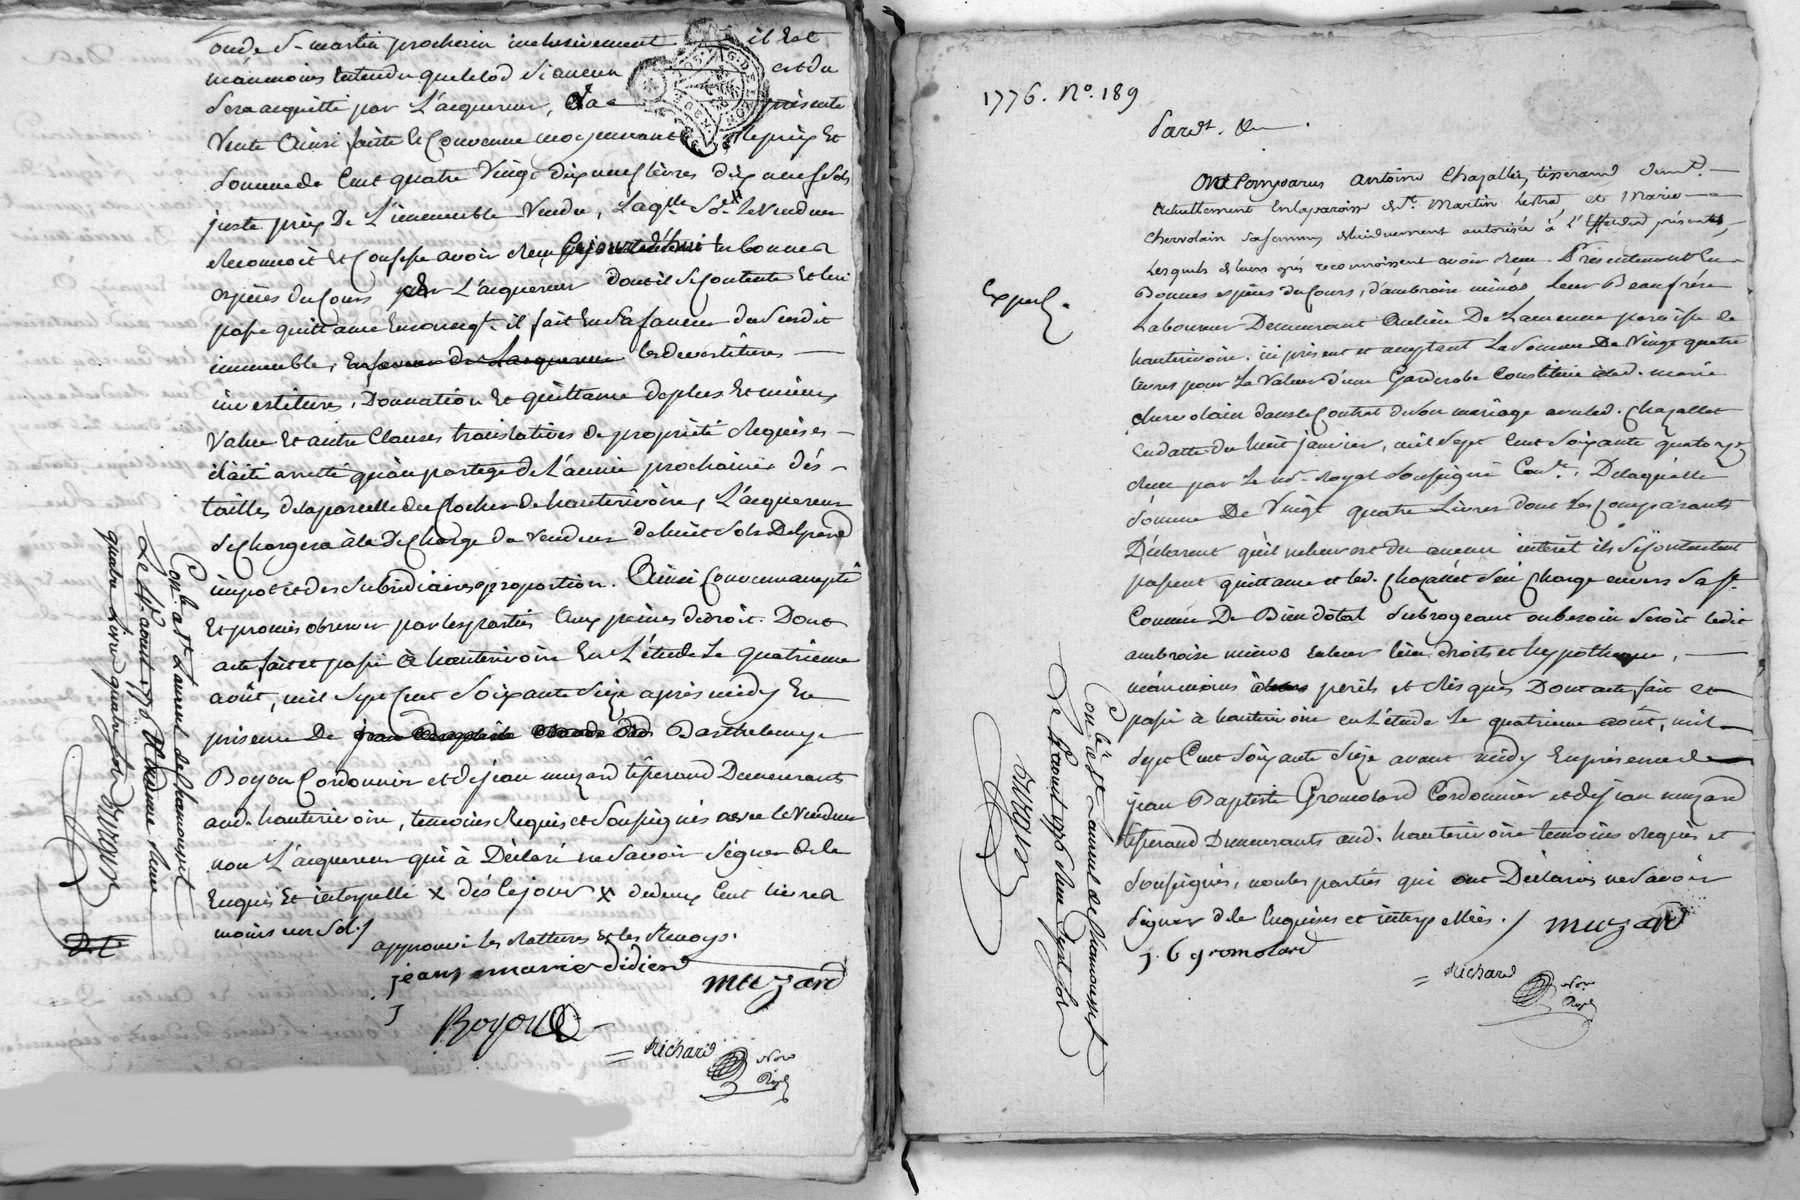 onde St martin prochain inclusivement il est
neanmoins entendu que le lod si aucun est du
sera acquitté par L'acquereur, La présente
Vente Ainsi faitte et Convenue moyennant le prix et
somme de Cent quatre Vingt dix neuf livres dix neuf sols
juste prix De L'immeuble Vendu, Laqlle So.e Le Vendeur
Reconnoit et Confesse avoir Reçu en bonnes
espèces du Cours par L'acquereur dont il se Contente et lui
passe quittance il fait en sa faveur du susdit
immeuble, en faveur de Lacquereur les devestitures
investitures, Donnation et quittance de plus et mieux
Value et autre Clauses translatives de propriété Requises
il a été arretté qu'au partage de L'année prochaine dés
tailles de la parcelle du Clocher de hauterivoire, L'acquereur
se Chargera à la Décharge du Vendeur de huit sols De principal
impot et des subsidiaires a proportion. Ainsi Convenu accepté
Et promis observer par les parties aux peines de droit. Dont
acte fait et passé à hauterivoire En L'étude Le quatrieme
août, mil Sept Cent Soixante Seize après midy En
présence De jean Baptiste Barthelemy
Boyou Cordonnier et de jean muzard tisserand Demeurants
aud. hauterivoire, temoins Requis et Soussignés avec le Vendeur
non L'acquereur qui à Déclaré ne Savoir Signer de ce
Enquis Et interpellé x dés le jour x de deux Cent livres
moins un sol./
approuvé les Ratures et les Renvoys.
jean marie didier
muzard
Boyou
Richard Nore
Royl
Conle. a St Laurent de Chamousset
Le 14e. aoust 1776
quatre livre quatre sol
1776. No. 189
Pardt. &
Ont Comparus antoine Chazallet, tisserand demt.
actuellement En la paroisse de St. Martin Lestrat et Marie
Chervolain sa femme düement autorisée à L'Effet des présentes,
Lesquels de leurs grés reconnoissent avoir Reçu Présentement En
Bonnes espéces du Cours, d'ambroise minos Leur Beaufrére
Laboureur Demeurant Au lieu De Lavenne paroisse de
hauterivoire. ici présent et acceptant La Somme De Vingt quatre
Livres pour La Valeur d'une Garderobe Constituée à lad. marie
Chervolain dans le Contrat de son mariage avec led. Chazallet
En datte du huit janvier, mil Sept Cent Soixante quatorze
Reçu par Le nore. Royal Soussigné Conle. De laquelle
Somme De Vingt quatre Livres dont Les Comparants
Déclarent qu'il ne leur est du aucun interêt ils se Contentent
passent quittance et led. Chazallet s'en Charge envers Sa fe.
Comme De Bien dotal Subrogeant au besoin Seroit ledit
ambroise minos En leur lieu droits et hypotheque,
néanmoins à ses perils et Risques Dont acte fait et
passé à hauterivoire en L'étude Le quatrieme août, mil
Sept Cent Soixante Seize avant midy En présence de
jean Baptiste Gromolard Cordonnier et de jean muzard
tisserand Demeurants aud. hauterivoire temoins Requis et
Soussignés, non les parties qui ont Déclarés ne Savoir
Signer de ce Enquises et interpellées. / muzard
j. b gromolard
Richard Nore
Royl
Expedié.
Conle. a St Laurent de Chamousset